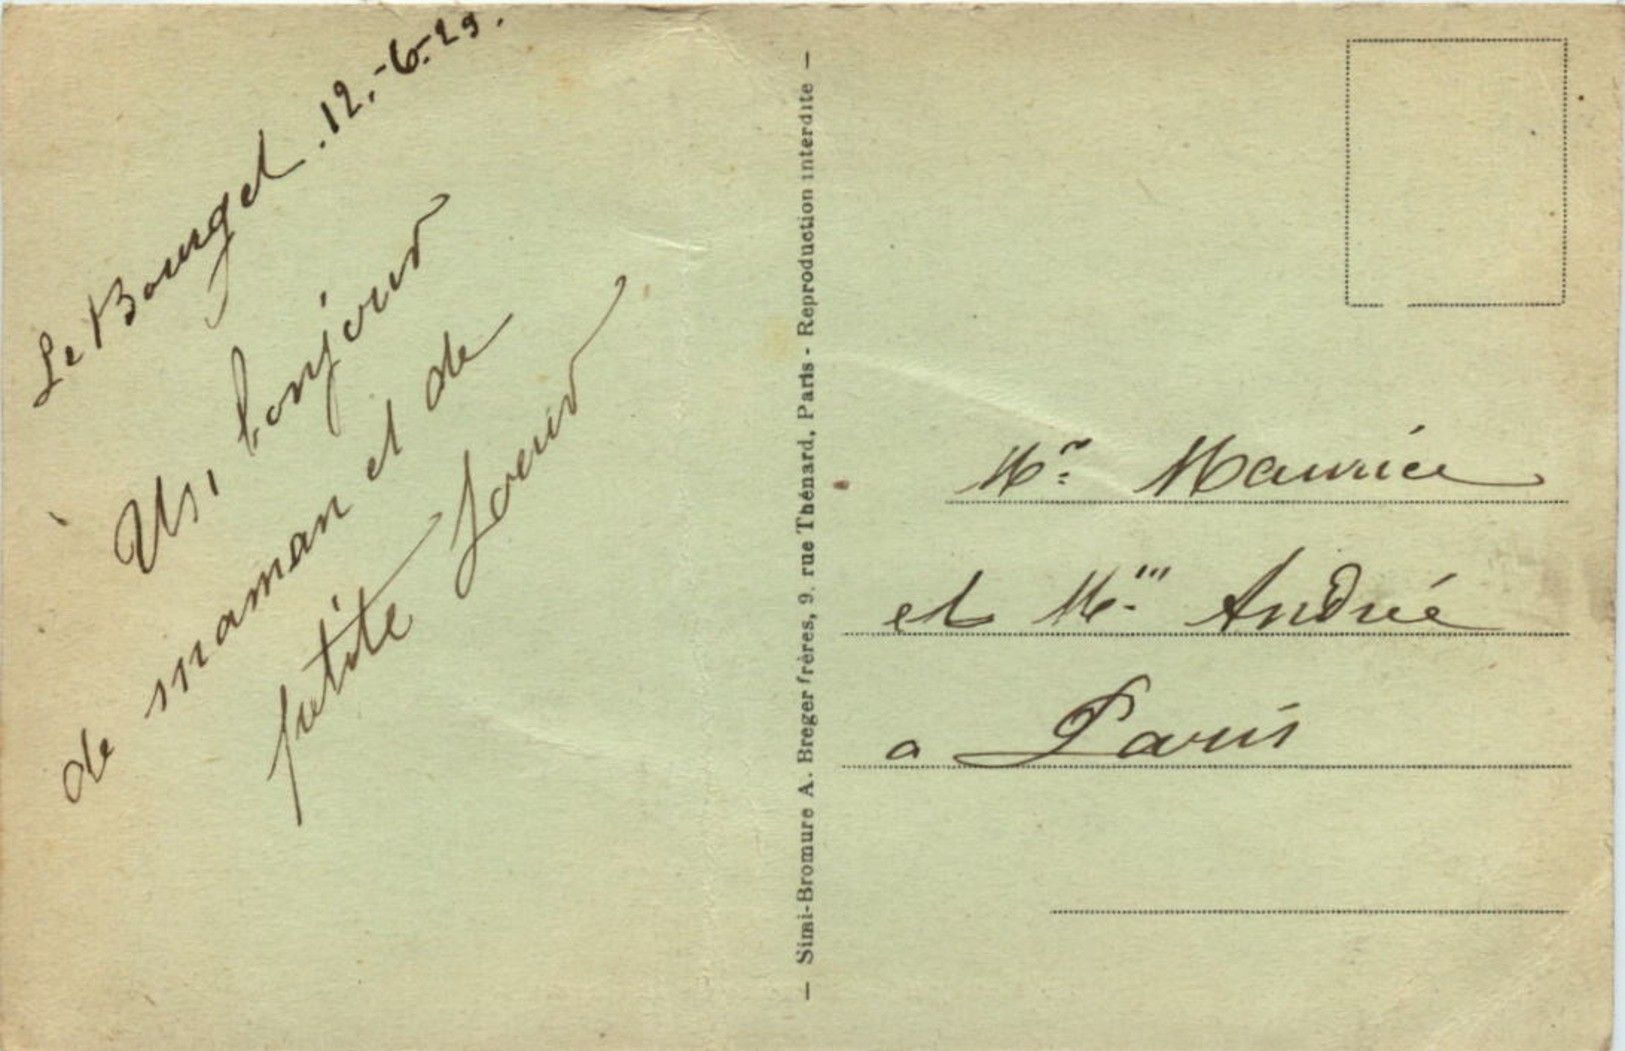 Le Bourget . 12.-6.-29.
Un, bonjour
de maman et de
petite soeur
— Simi-Bromure A. Breger frères, 9. rue Thénard, Paris - Reproduction interdite —
Mr: Maurice
et Mr. André
a Paris